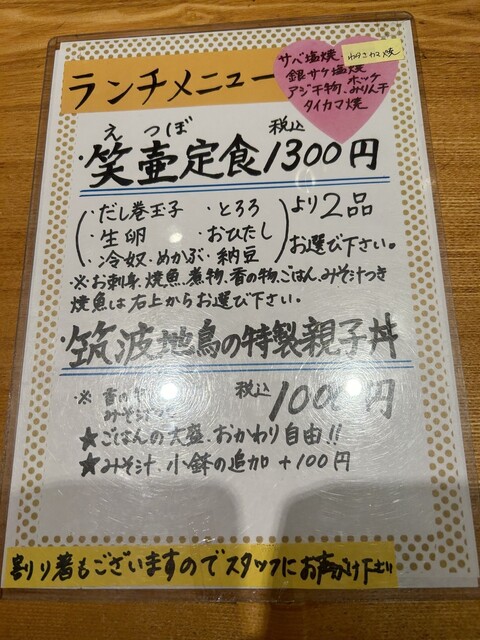 ランチメニュー
サバ塩焼
銀サケ塩焼
ホッケ
アジ干物、みりん干
タイカマ焼
えつぼ
・笑壷定食 税込 1300円
・だし巻玉子 ・とろろ
・生卵 ・おひたし
・冷奴・めかぶ・納豆
より2品
お選び下さい。
※お刺身、焼魚、煮物、香の物、ごはん、みそ汁つき
焼魚は右上からお選び下さい。
・筑波地鳥の特製親子丼
※香の物
みそ汁つき
税込 1000円
★ごはんの大盛、おかわり自由!!
★みそ汁、小鉢の追加 +100円
割り箸もございますのでスタッフにお声がけ下さい